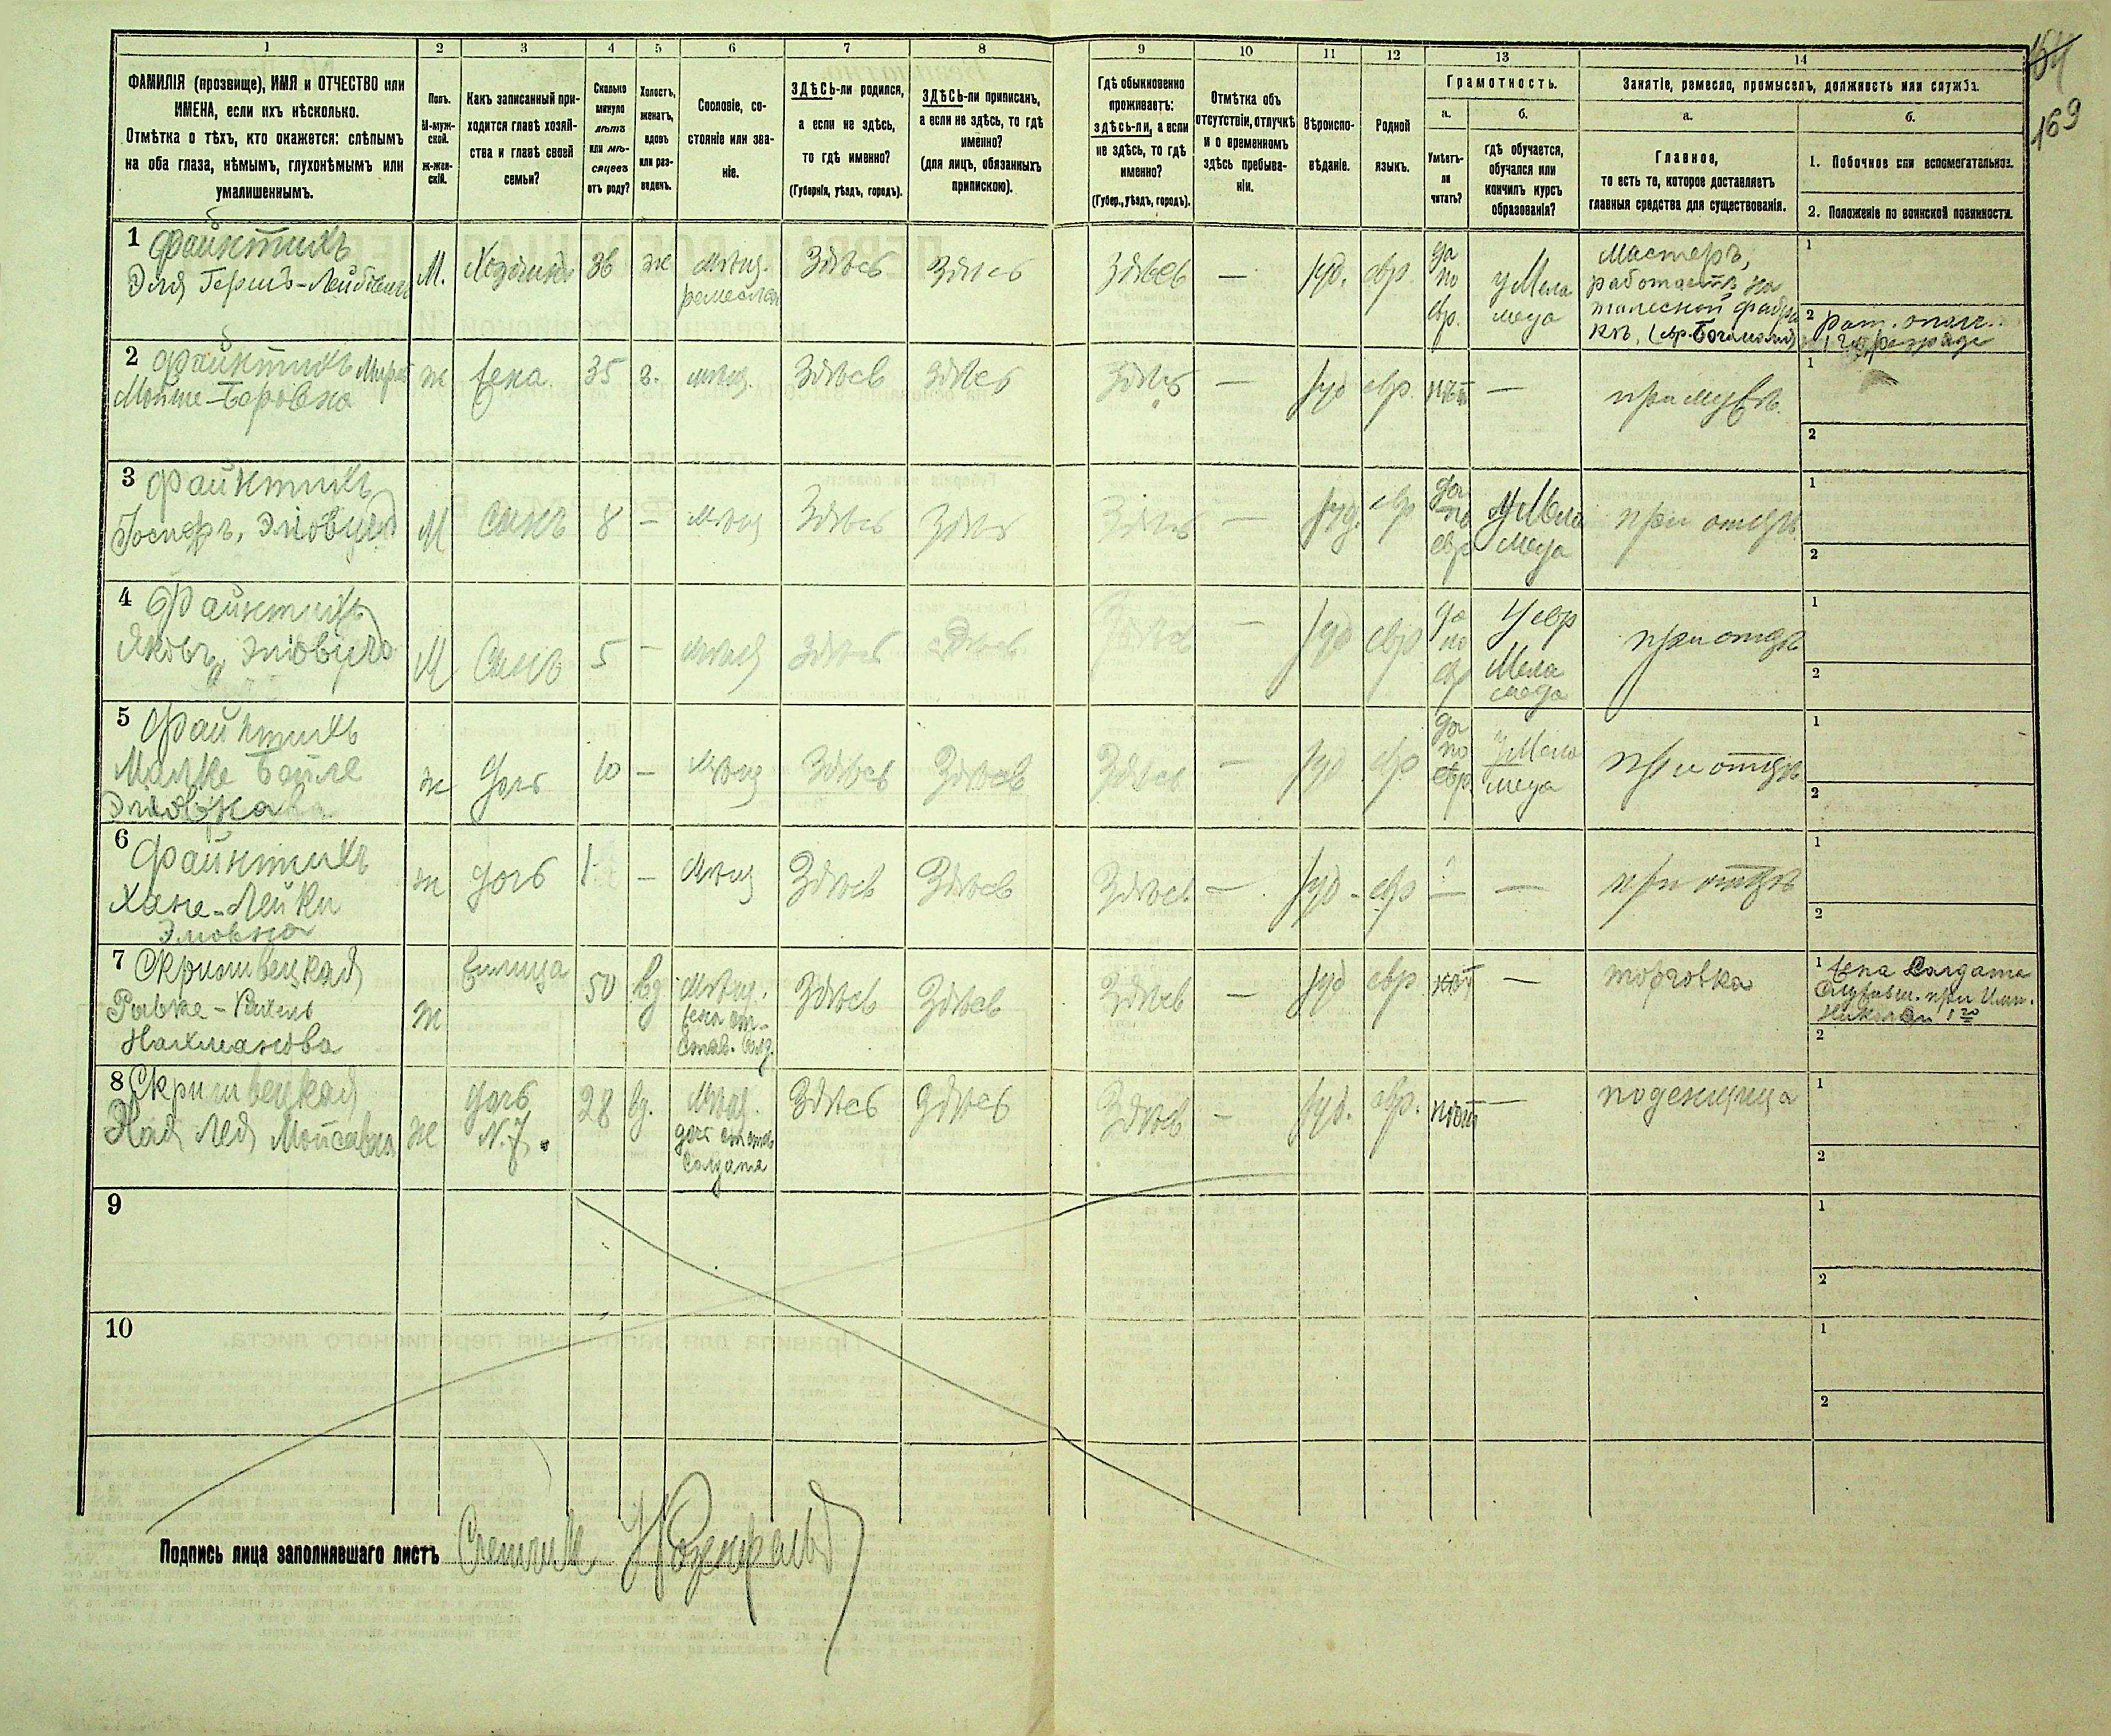 1 2 3 4 5 6 7 8 9 10 11 12 13 14
ФАМИЛІЯ (прозвище), ИМЯ и ОТЧЕСТВО или
ИМЕНА, если ихъ нѣсколько.
Отмѣтка о тѣхъ, кто окажется: слѣпымъ
на оба глаза, нѣмымъ, глухонѣмымъ или
умалишеннымъ.
Полъ.
М-муж-
ской.
Ж-жен-
скій.
Какъ записанный при-
ходится главѣ хозяй-
ства и главѣ своей
семьи?
Сколько
минуло
лѣтъ
или мѣ-
сяцевъ
отъ роду?
Холостъ,
женатъ,
вдовъ
или раз-
веденъ.
Сословіе, со-
стояніе или зва-
ніе.
ЗДѢСЬ-ли родился,
а если не здѣсь,
то гдѣ именно?
(Губернія, уѣздъ, городъ).
ЗДѢСЬ-ли приписанъ,
а если не здѣсь, то гдѣ
именно?
(для лицъ, обязанныхъ
припискою).
Гдѣ обыкновенно
проживаетъ:
здѣсь-ли, а если
не здѣсь, то гдѣ
именно?
(Губер., уѣздъ, городъ).
Отмѣтка объ
отсутствіи, отлучкѣ
и о временномъ
здѣсь пребыва-
ніи.
Вѣроиспо-
вѣданіе.
Родной
языкъ.
Грамотность.
а.
Умѣетъ-
ли
читать?
б.
гдѣ обучается,
обучался или
кончилъ курсъ
образованія?
Занятіе, ремесло, промыселъ, должность или служба.
а.
Главное,
то есть то, которое доставляетъ
главныя средства для существованія.
б.
1. Побочное или вспомогательное.
2. Положеніе по воинской повинности.
164
169
1 Файнтихъ
Эля Гершъ-Лейбовичъ
М.
Хозяинъ
36
ж
Мѣщ.
ремеслен
Здѣсь
Здѣсь
Здѣсь
—
іуд.
евр.
да
по
евр.
у Мела
меда
Мастеръ,
работаетъ на
фабри
кѣ,
1
2
2 Файнтихъ
Мойше-Боровна
ж
жена.
35
з.
мѣщ.
Здѣсь
Здѣсь
Здѣсь
—
іуд
евр.
нѣтъ
—
при мужѣ.
1
2
3 Файнтихъ
Іосифъ, Эліовичъ
М
Сынъ
8
—
мѣщ
Здѣсь
Здѣсь
Здѣсь
—
іуд.
евр
да
по
евр
у Мела
меда
при отцѣ
1
2
4 Файнтихъ
Яковъ, Эліовичъ
М
Сынъ
5
—
мѣщ
Здѣсь
Здѣсь
Здѣсь
—
іуд
евр
да
по
евр
У евр
Мела
меда
при отцѣ
1
2
5 Файнтихъ
Малке Бейле
Эліовна
ж
дочь
10
—
мѣщ
Здѣсь
Здѣсь
Здѣсь
—
іуд
евр
да
по
евр
у Мела
меда
при отцѣ
1
2
6 Файнтихъ
Хане-Лейки
Эліовна
ж
дочь
1
—
мѣщ
Здѣсь
Здѣсь
Здѣсь
—
іуд
евр
—
—
при отцѣ
1
2
7
Нахманова
ж
50
вд
Мѣщ.
жена от-
став. солд.
Здѣсь
Здѣсь
Здѣсь
—
іуд
евр
нѣт
—
торговка
1 жена Солдата
Служивш. при Имп.
Николаи 1го
2
8
ж
дочь
N. 7.
28
вд.
Мѣщ.
дочь
Солдата
Здѣсь
Здѣсь
Здѣсь
—
іуд.
евр.
нѣтъ
—
поденщица
1
2
9
1
2
10
1
2
Подпись лица заполнявшаго листъ